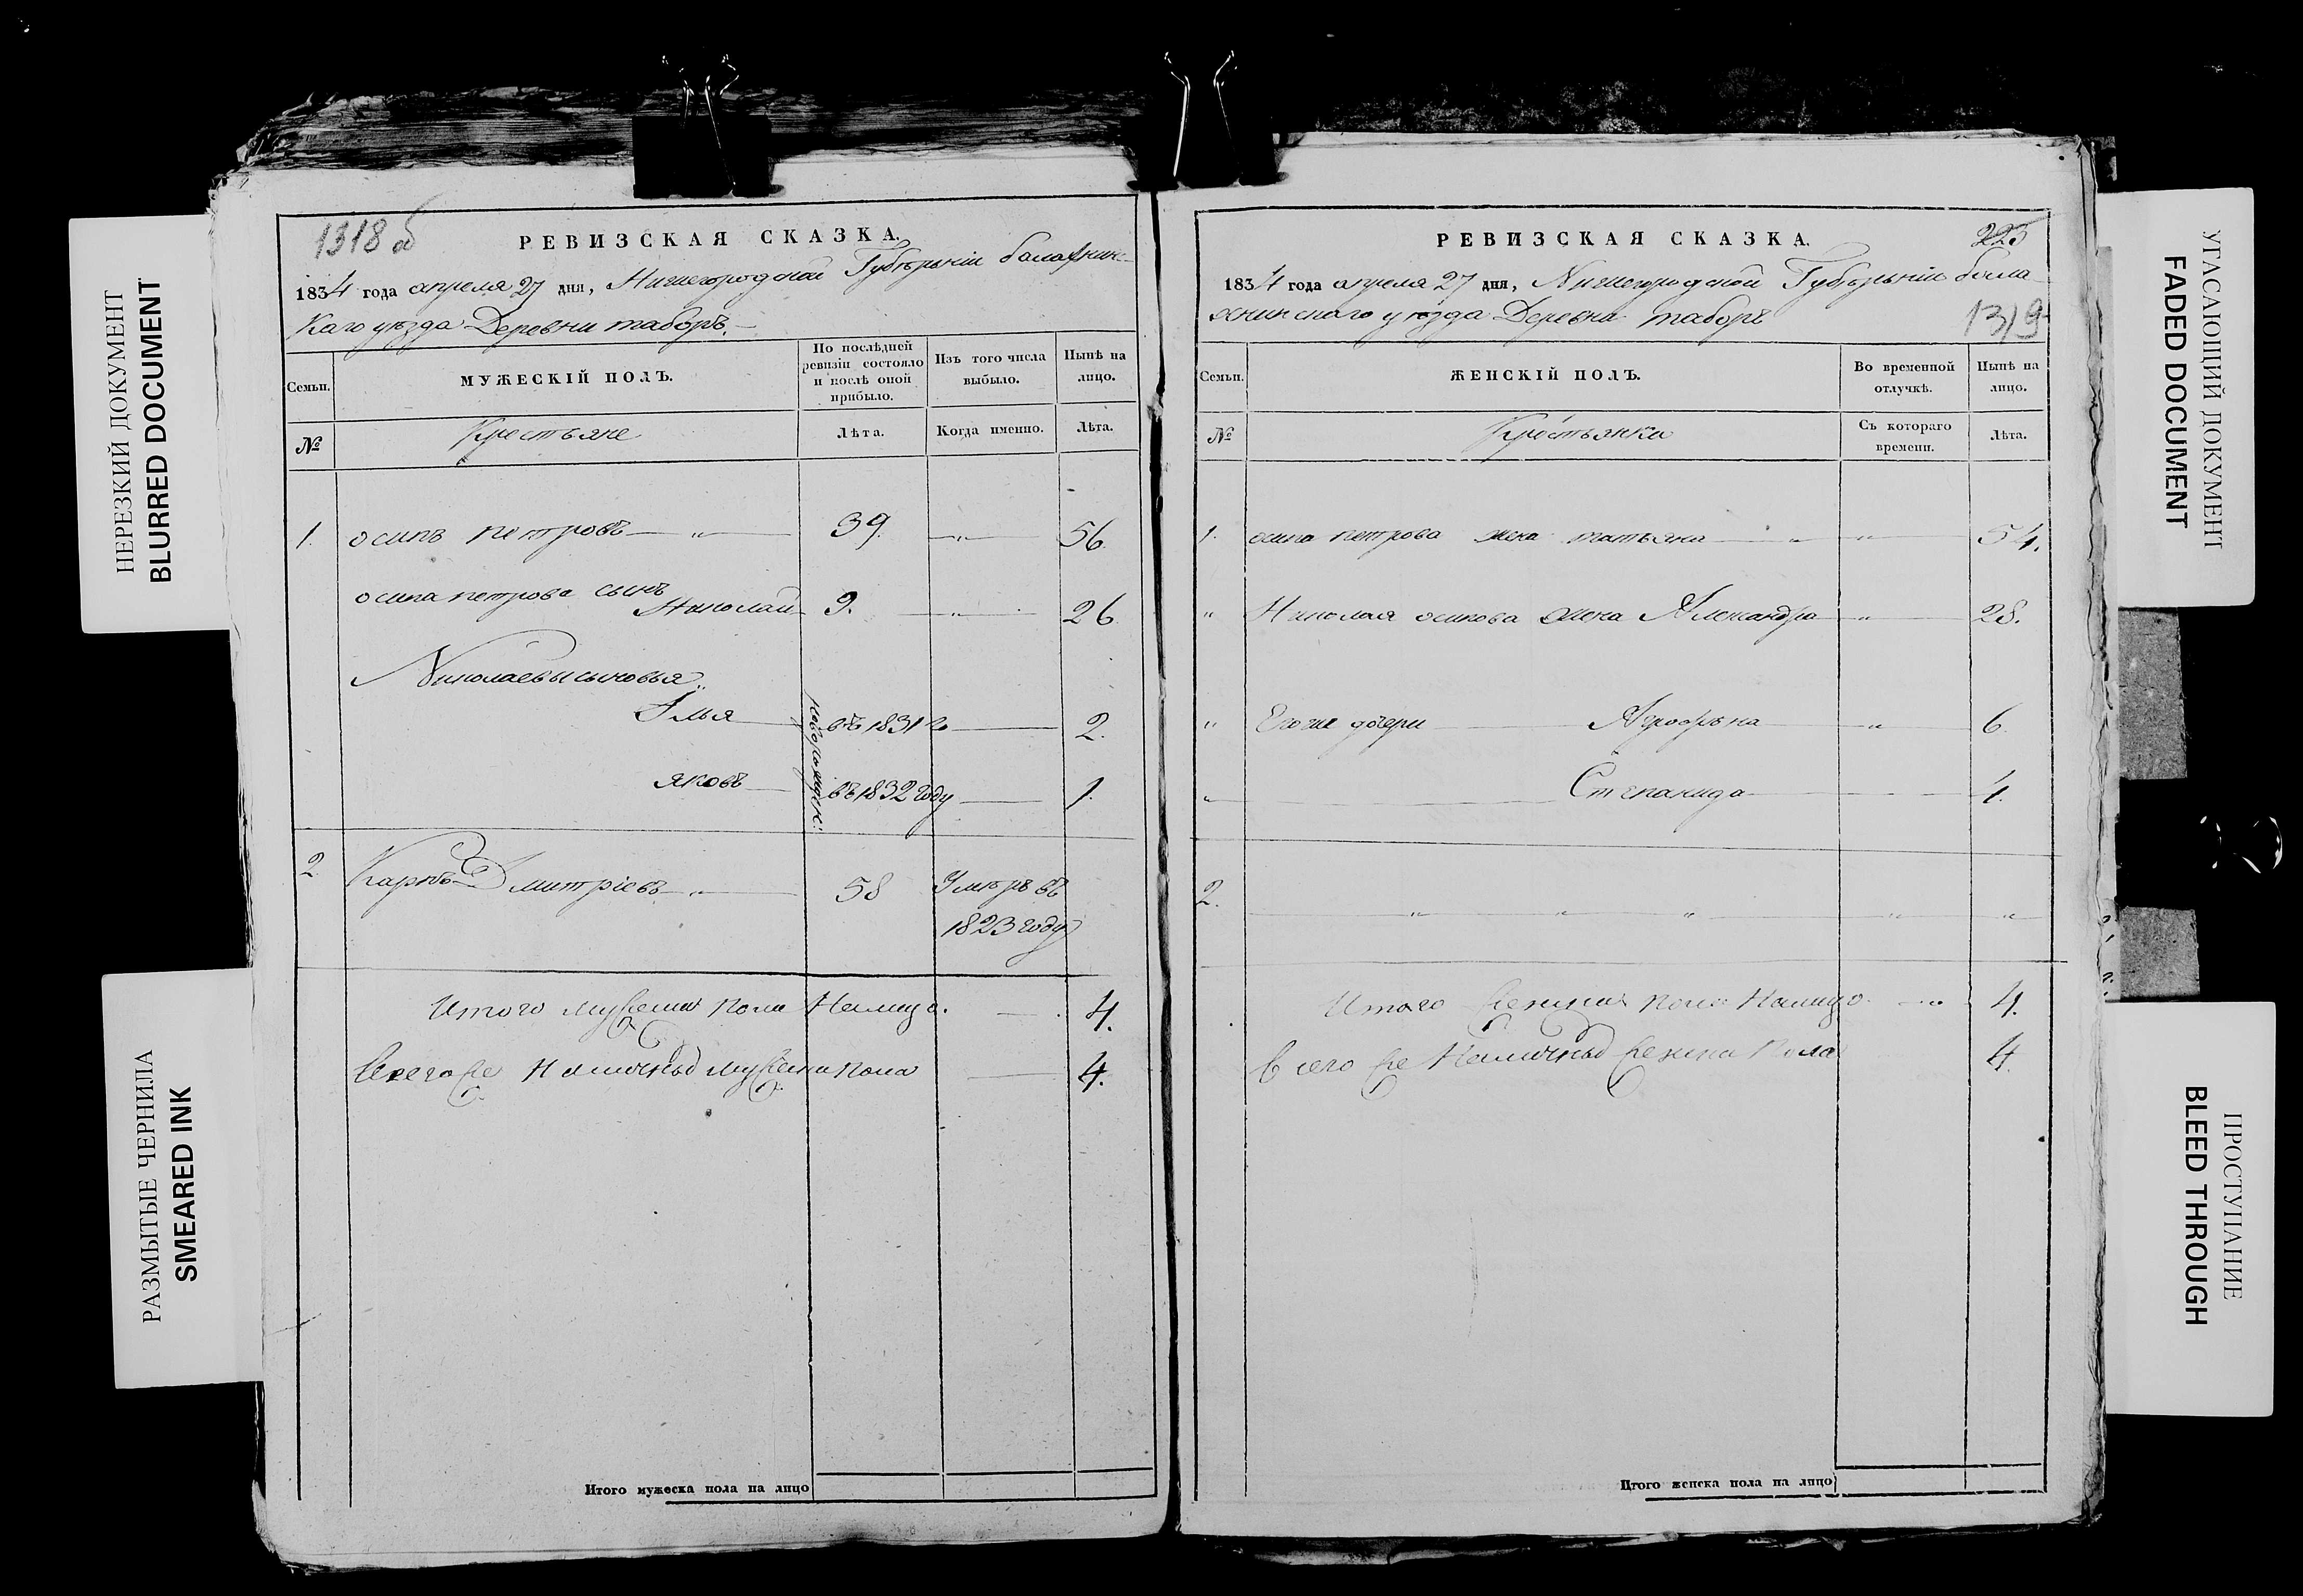 НЕРЕЗКИЙ ДОКУМЕНТ
BLURRED DOCUMENT
РАЗМЫТЫЕ ЧЕРНИЛА
SMEARED INK
1318 об
РЕВИЗСКАЯ СКАЗКА.
1834 года апреля 27 дня, Нижегородской Губѣрніи балахнинс-
каго уѣзда Деревни таборъ.
Семьи.
МУЖЕСКІЙ ПОЛЪ.
По послѣдней ревизіи состояло и послѣ оной прибыло.
Изъ того числа выбыло.
Нынѣ на лицо.
№
Крестьяне
Лѣта.
Когда именно.
Лѣта.
1. осипъ петровъ — „ — 39. — „ — 56
осипа петрова сынъ
Николай 9. — „ — 26
Николаевы сыновья
Илья въ 1831 г 2.
новорожден:
яковъ въ 1832 году 1.
2 Карпъ Дмитріевъ — „ — 58 Умѣръ въ
1823 году
Итого мужеска пола Налицо. 4.
Всего же Наличныхъ мужеска пола 4.
Итого мужеска пола на лицо
РЕВИЗСКАЯ СКАЗКА.
225
1834 года апреля 27 дня, Нижегородской Губѣрніи бала
хнинскаго уѣзда Деревни таборъ
1319
Семьи.
ЖЕНСКІЙ ПОЛЪ.
Во временной отлучкѣ.
Нынѣ на лицо.
№
Крестьянки
Съ котораго времени.
Лѣта.
1. осипа петрова жена татьяна — „ — „ — 54.
„ Николая осипова жена Александра — „ — 28.
„ Егоже дочери Афрофѣна — „ — 6
„ Степанида 4.
2. „ „ „ „ „
Итого женска пола Налицо 4.
Всего же Наличныхъ женска пола 4.
Итого женска пола на лицо
УГАСАЮЩИЙ ДОКУМЕНТ
FADED DOCUMENT
ПРОСТУПАНИЕ
BLEED THROUGH